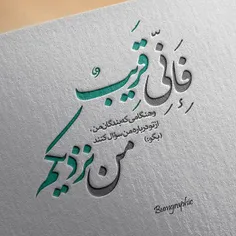 فَإِنِّی قَرِیبٌ
وهنگامی که بندگان من،
از تو درباره من سؤال کنند
(بگو:)
من نزدیکم
Bamgraphic